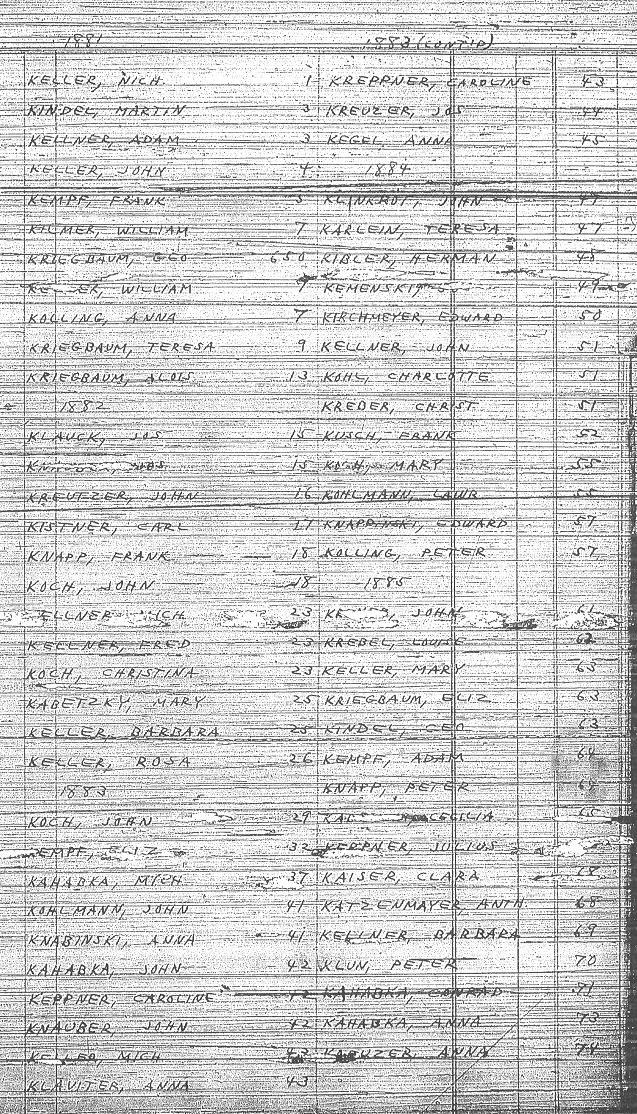 1881
KELLER, NICH 1
KINDEL, MARTIN 3
KELLNER, ADAM 3
KELLER, JOHN 4
KEMPF, FRANK 5
KILMER, WILLIAM 7
KRIEGBAUM, GEO 650
WILLIAM 9
KOLLING, ANNA 7
KRIEGBAUM, TERESA 9
KRIEGBAUM, ALOIS 13
1882
KLAUCK, JOS 15
15
KREUTZER, JOHN 16
KISTNER, CARL 17
KNAPP, FRANK 18
KOCH, JOHN 18
23
KELLNER, FRED 23
KOCH, CHRISTINA 23
KABETZKY, MARY 25
KELLER, BARBARA 25
KELLER, ROSA 26
1883
KOCH, JOHN 29
KEMPF, ELIZ 32
KAHABKA, MICH 37
KOHLMANN, JOHN 41
KNABINSKI, ANNA 41
KAHABKA, JOHN 42
KEPPNER, CAROLINE 42
KNAUBER, JOHN 42
MICH 43
KLAVITER, ANNA 43
1883 (CONT'D)
KREPPNER, CAROLINE 43
KREUZER, JOS 44
KEGEL, ANNA 45
1884
JOHN 47
KARLEIN, TERESA 47
KIBLER, HERMAN 48
KEMENSKI 49
KIRCHMEYER, EDWARD 50
KELLNER, JOHN 51
KOHL, CHARLOTTE 51
KREDER, CHRIST 51
KUSCH, FRANK 52
KOCH, MARY 55
KOHLMANN, LAWR 55
KNAPPINSKI, EDWARD 57
KOLLING, PETER 57
1885
JOHN 61
KREBEL, LOUISE 62
KELLER, MARY 63
KRIEGBAUM, ELIZ 63
KINDEL, GEO 63
KEMPF, ADAM 64
KNAPP, PETER 64
CECILIA 65
KEPPNER, JULIUS
KAISER, CLARA 68
KATZENMAYER, ANTH. 68
KELLNER, BARBARA 69
KLUN, PETER 70
KAHABKA, CONRAD 71
KAHABKA, ANNA 73
KREUZER, ANNA 74